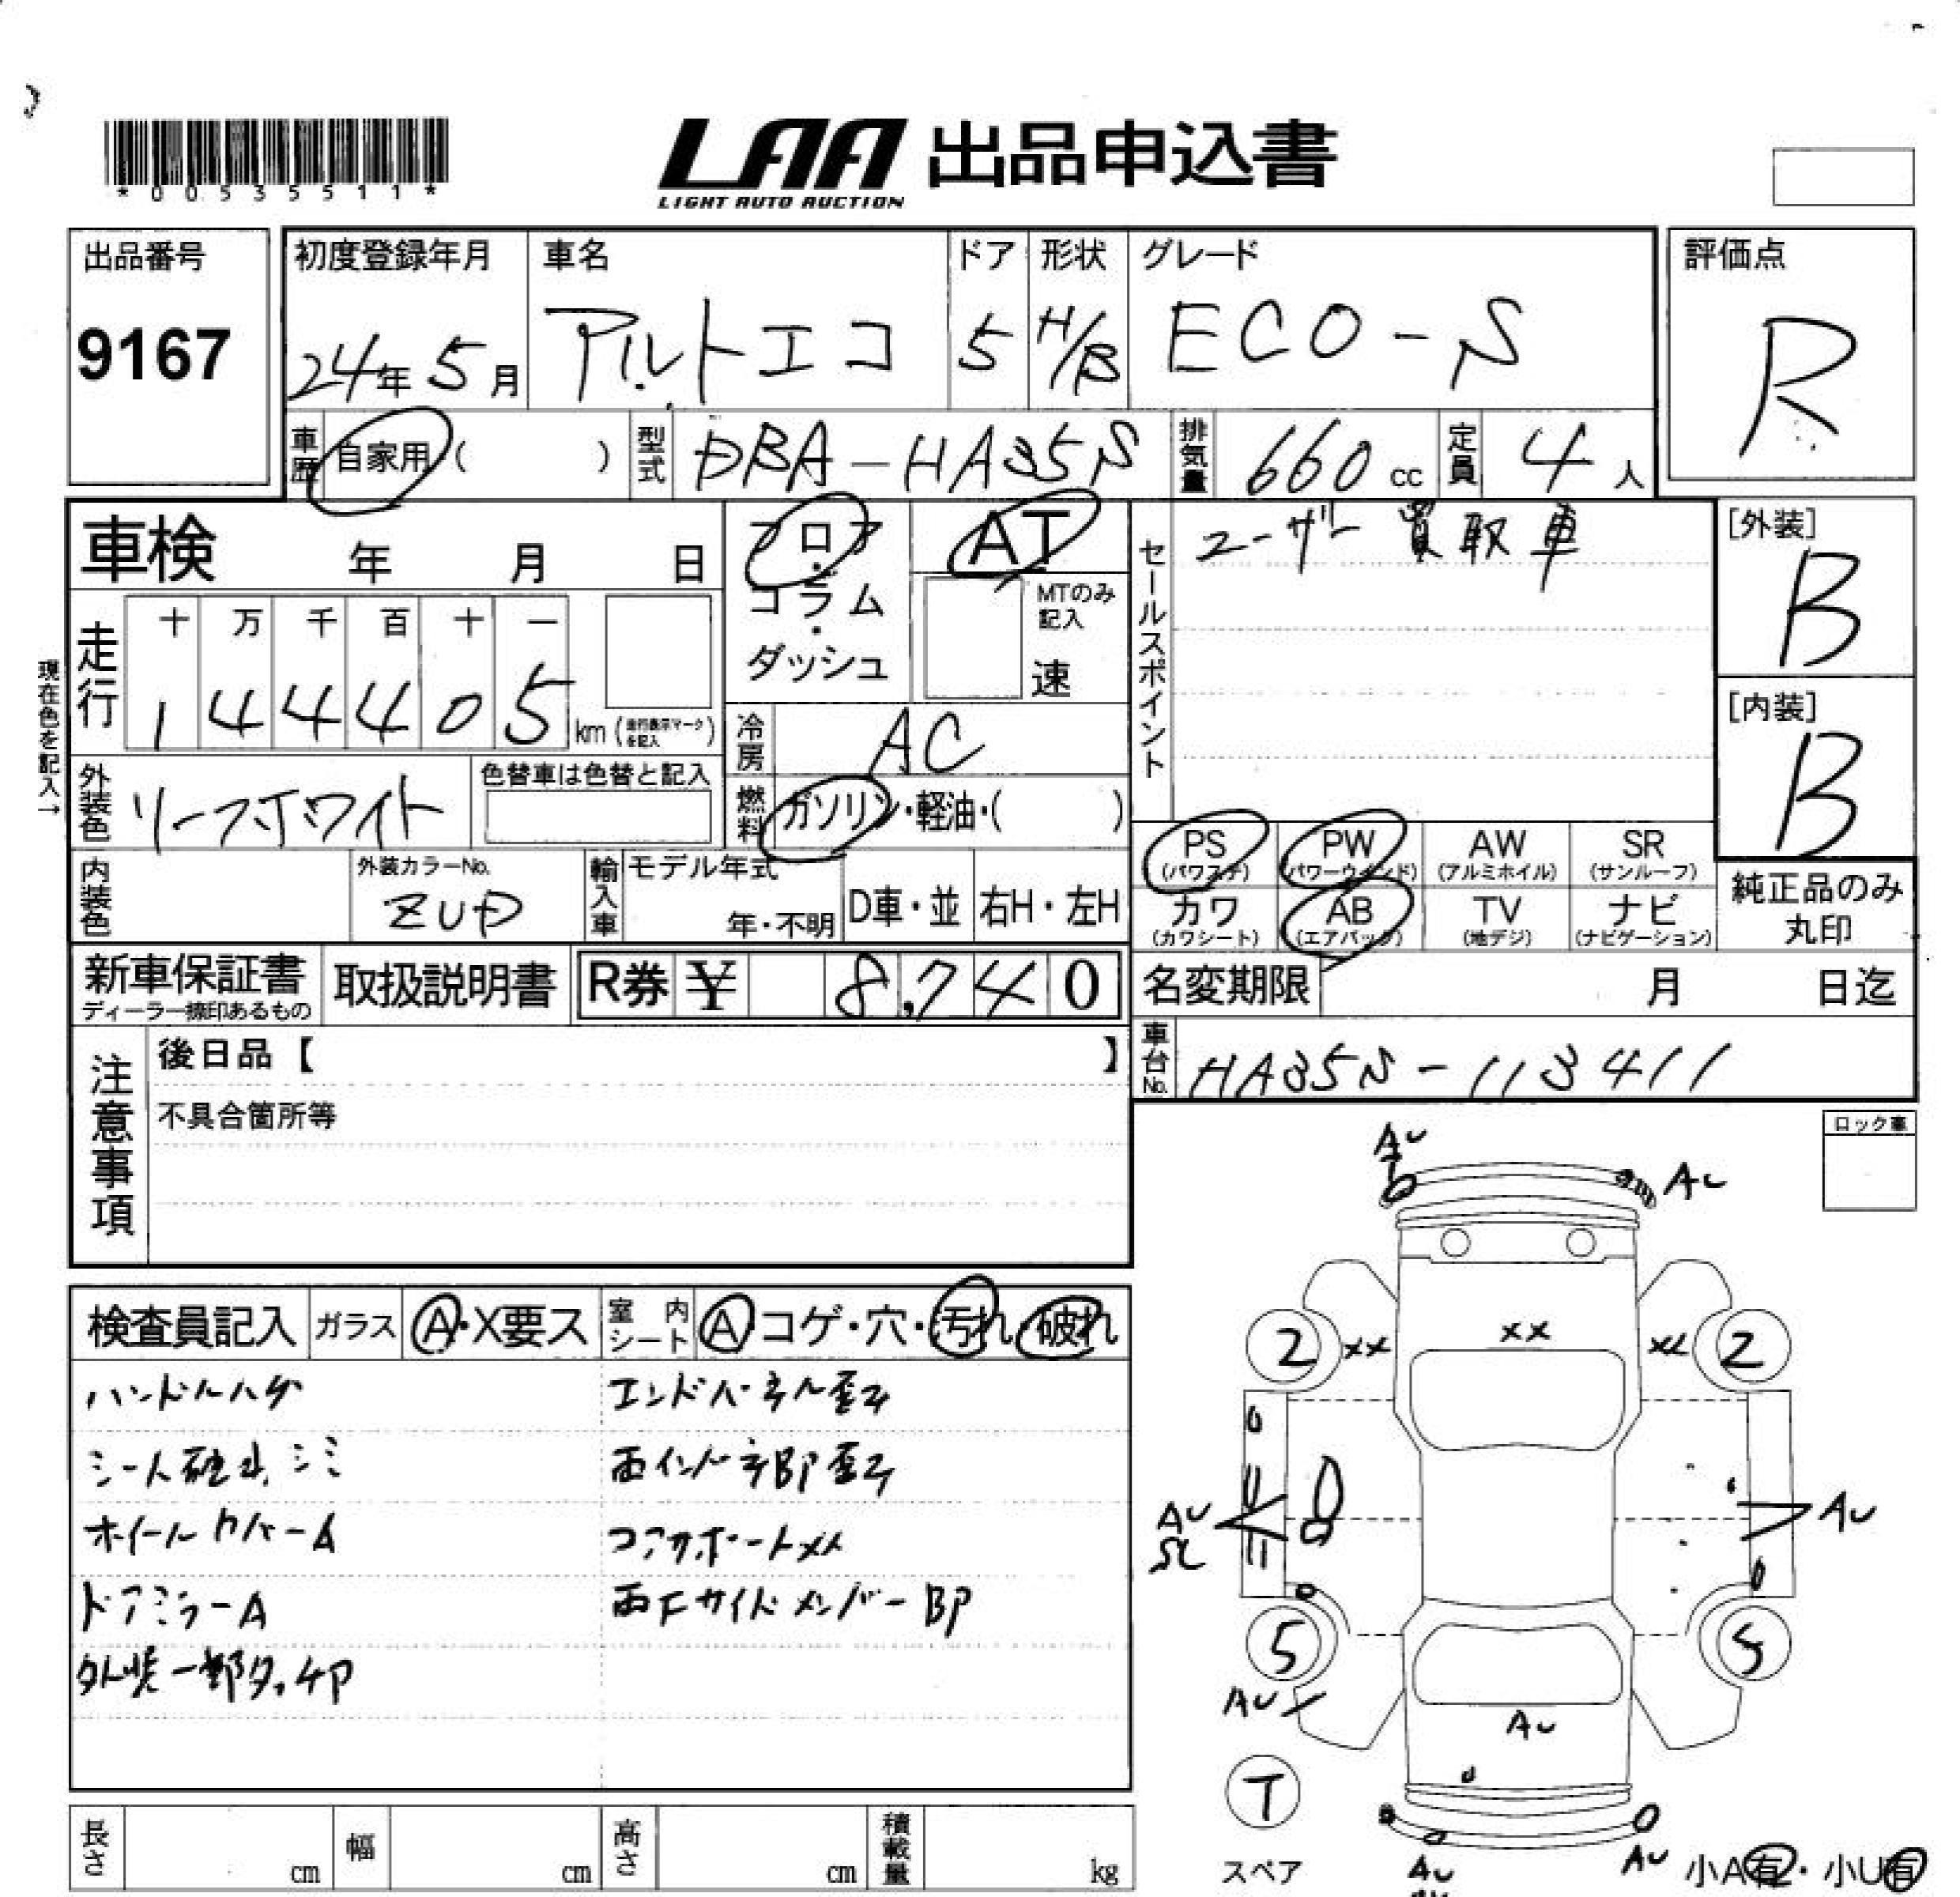 *00535511*
LAA 出品申込書
LIGHT AUTO AUCTION
出品番号
9167
初度登録年月
24年5月
車名
アルトエコ
ドア
5
形状
H/B
グレード
ECO-S
評価点
R
車歴 自家用 ( )
型式 DBA-HA35S
排気量 660cc
定員 4人
車検 年 月 日
フロア・コラム・ダッシュ
AT
MTのみ記入
速
セールスポイント
ユーザー買取車
[外装]
B
[内装]
B
現在色を記入→
走行
十 万 千 百 十 一
1 4 4 4 0 5 km (走行表示マークを記入)
冷房 AC
燃料 ガソリン・軽油・( )
外装色 リーフホワイト
色替車は色替と記入
内装色
外装カラーNo.
ZUD
輸入車
モデル年式
年・不明
D車・並
右H・左H
PS (パワステ)
PW (パワーウインド)
AW (アルミホイル)
SR (サンルーフ)
カワ (カワシート)
AB (エアバック)
TV (地デジ)
ナビ (ナビゲーション)
純正品のみ丸印
新車保証書
ディーラー捺印あるもの
取扱説明書
R券 ¥ 8,740
名変期限 月 日迄
車台No. HA35S-113411
注意事項
後日品【 】
不具合箇所等
ロック車
検査員記入
ガラス A・X要ス
室内シート A・コゲ・穴・汚れ・破れ
ハンドルハゲ
シート破れ,シミ
ホイールカバーA
ドアミラーA
外装一部タッチP
エンドパネル歪み
両インパネBP歪み
コアサポートXX
両FサイドメンバーBP
AU
AU
2
XX
XX
XX
2
AU
SL
AU
5
5
AU
AU
T
スペア
AU
AU
小A有・小U有
長さ cm
幅 cm
高さ cm
積載量 kg